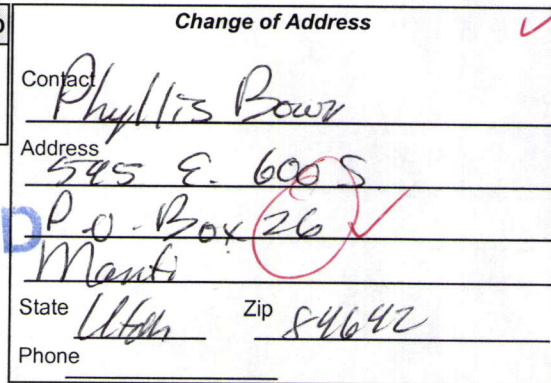 Change of Address
Contact Phyllis Bown
Address 545 E. 600 S
P.O. Box 26
Manti
State Utah Zip 84642
Phone